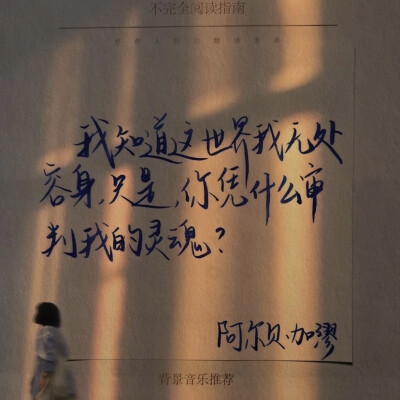 不完全阅读指南
我知道这世界我无处
容身,只是,你凭什么审
判我的灵魂?
阿尔贝·加缪
背景音乐推荐